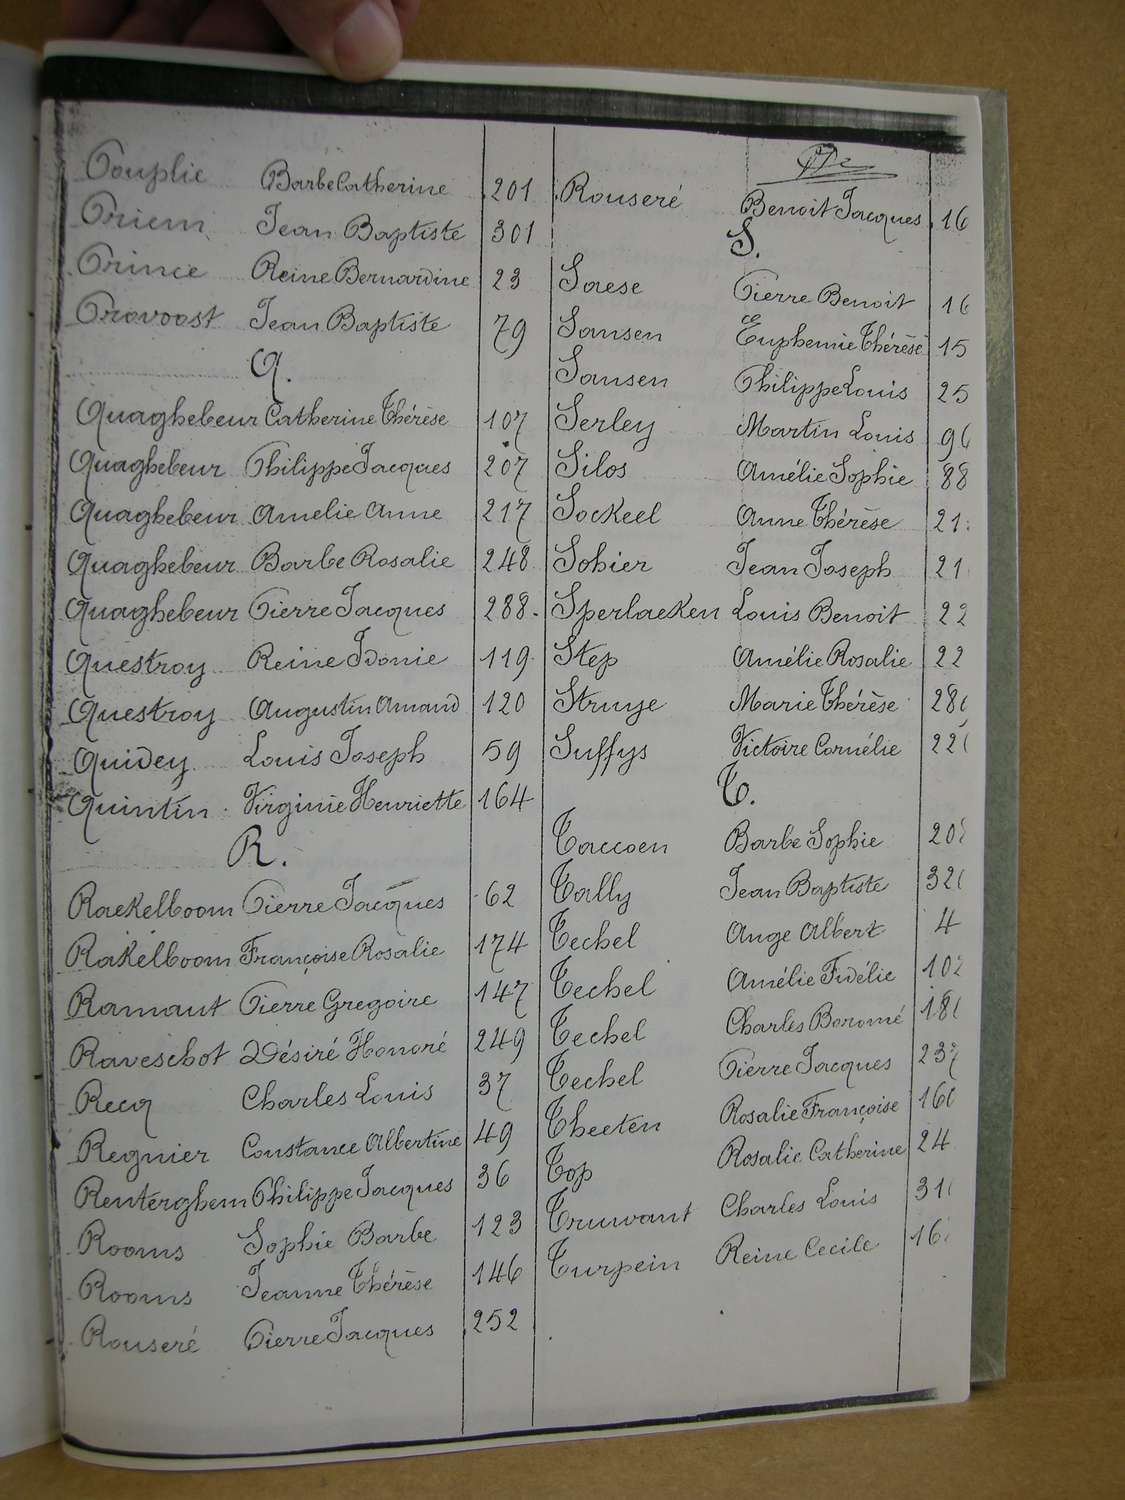 Pouplie Barbe Catherine 201
Priem Jean Baptiste 301
Prince Reine Bernardine 23
Provoost Jean Baptiste 79
Q.
Quaghebeur Catherine Thérèse 107
Quaghebeur Philippe Jacques 207
Quaghebeur Amelie Anne 217
Quaghebeur Barbe Rosalie 248
Quaghebeur Pierre Jacques 288
Questroy Reine Idonie 119
Questroy Augustin Amand 120
Quidey Louis Joseph 59
Quintin Virginie Henriette 164
R.
Raekelboom Pierre Jacques 62
Rakelboom Françoise Rosalie 174
Ramaut Pierre Gregoire 147
Raveschot Désiré Honoré 249
Recq Charles Louis 37
Regnier Constance Albertine 49
Renterghem Philippe Jacques 36
Rooms Sophie Barbe 123
Rooms Jeanne Thérèse 146
Rouseré Pierre Jacques 252
Rouseré Benoit Jacques 16
S.
Saese Pierre Benoit 16
Sansen Euphemie Thérèse 15
Sansen Philippe Louis 25
Serley Martin Louis 9
Silos Amélie Sophie 88
Sockeel Anne Thérèse 21
Sohier Jean Joseph 21
Sperlaeken Louis Benoit 22
Step Amélie Rosalie 22
Struye Marie Thérèse 28
Suffys Victoire Cornélie 22
T.
Taccoen Barbe Sophie 20
Tally Jean Baptiste 32
Techel Ange Albert 4
Techel Amélie Fidélie 102
Techel Charles Boromé 18
Techel Pierre Jacques 237
Theeten Rosalie Françoise 16
Top Rosalie Catherine 24
Truwant Charles Louis 31
Turpein Reine Cecile 16